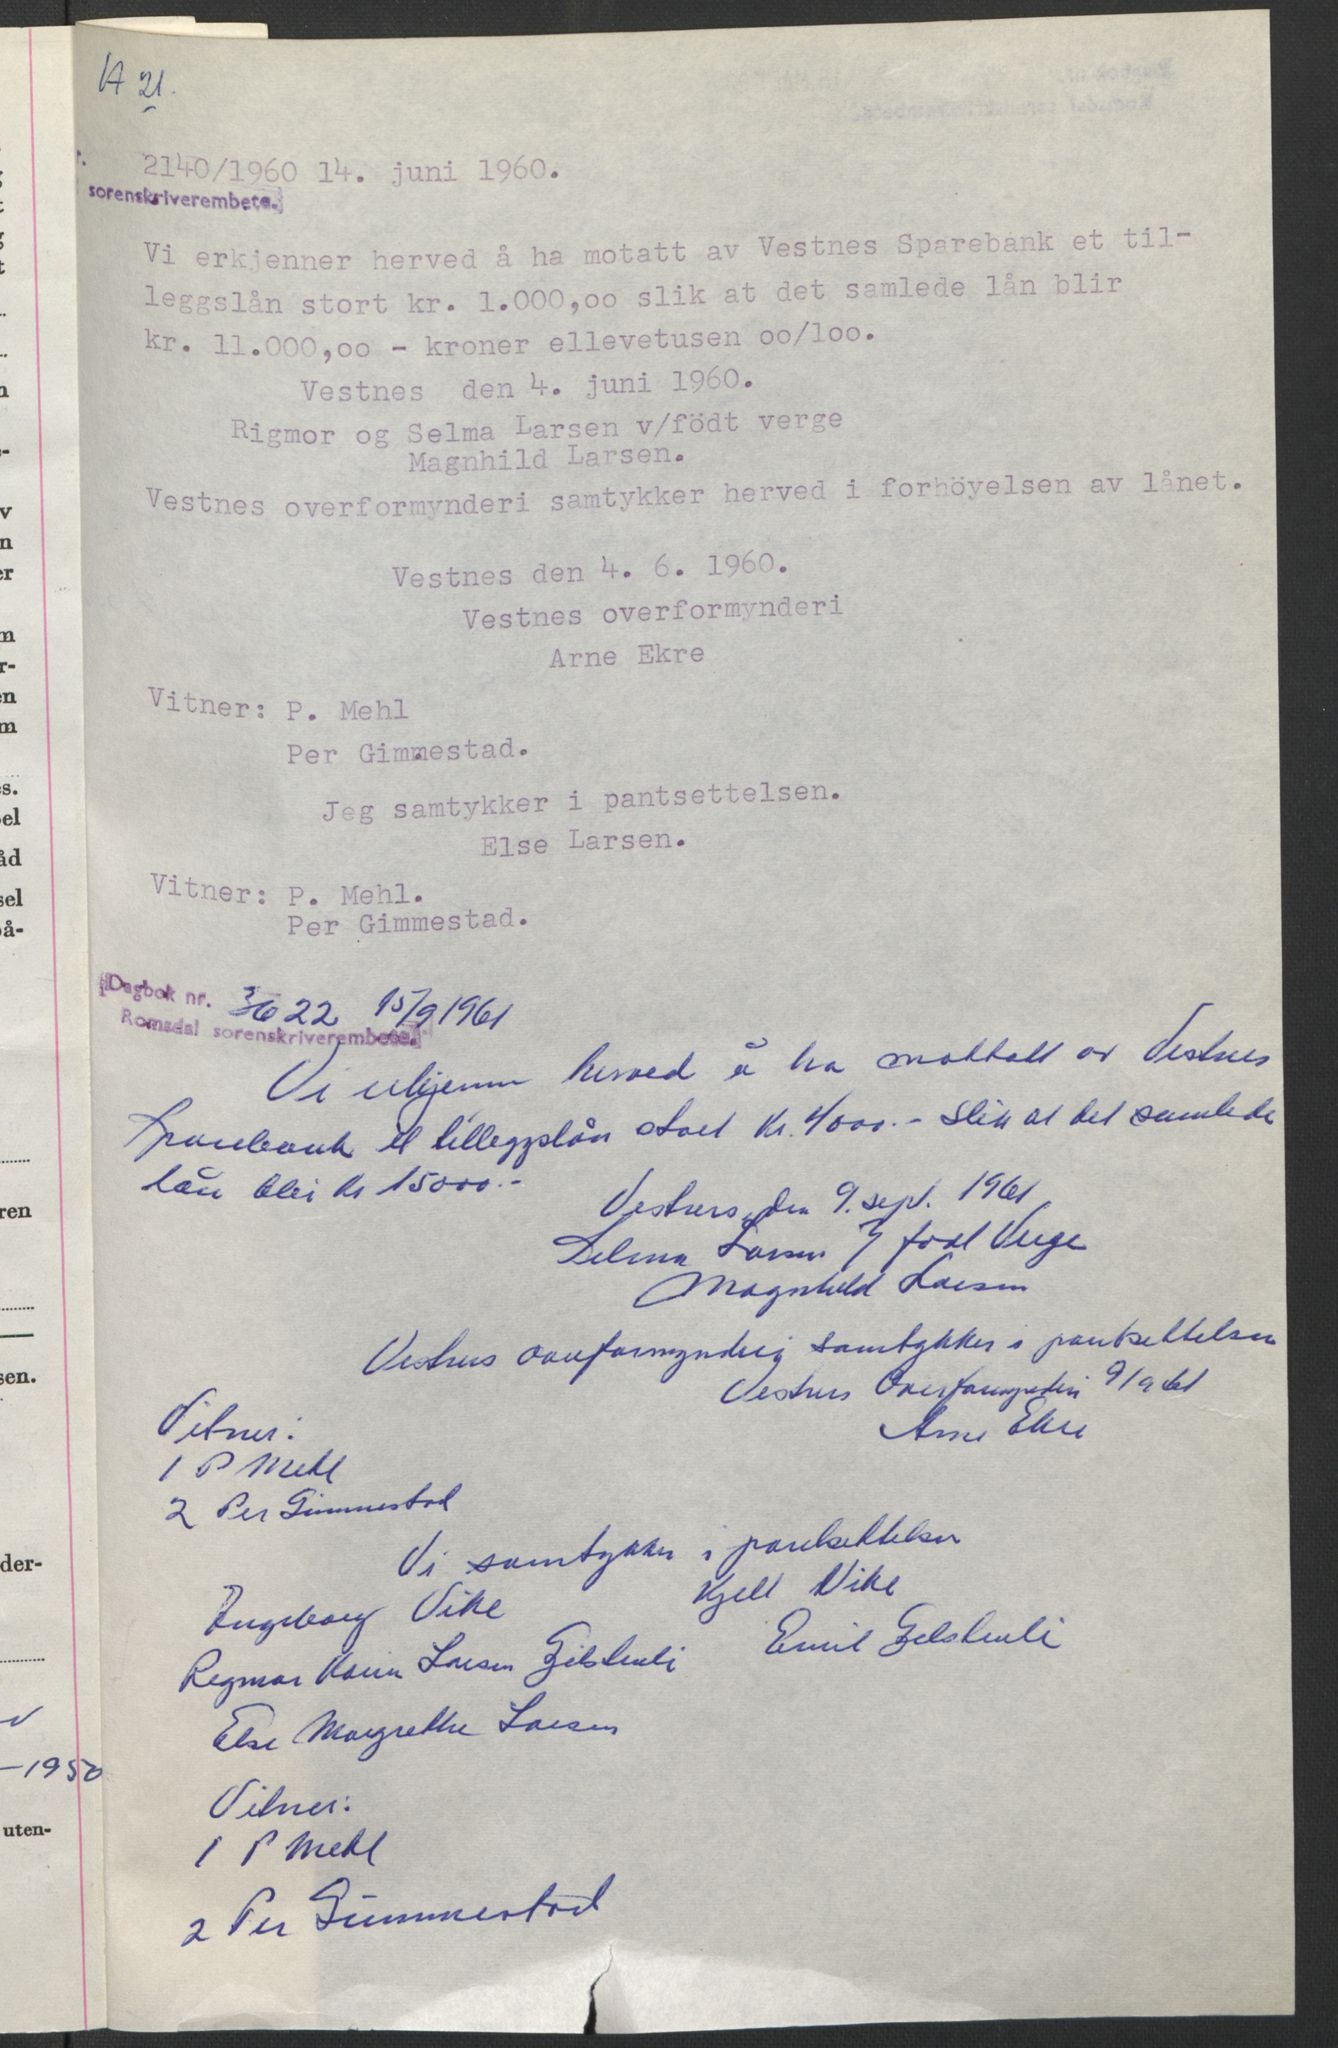 A 21.
2140/1960 14. juni 1960.
sorenskriverembete.
Vi erkjenner herved å ha motatt av Vestnes Sparebank et til-
leggslån stort kr. 1.000,oo slik at det samlede lån blir
kr. 11.000,oo - kroner ellevetusen oo/loo.
Vestnes den 4. juni 1960.
Rigmor og Selma Larsen v/födt verge
Magnhild Larsen.
Vestnes overformynderi samtykker herved i forhöyelsen av lånet.
Vestnes den 4. 6. 1960.
Vestnes overformynderi
Arne Ekre
Vitner: P. Mehl
Per Gimmestad.
Jeg samtykker i pantsettelsen.
Else Larsen.
Vitner: P. Mehl.
Per Gimmestad.
Dagbok nr. 3622 15/9 1961
Romsdal sorenskriverembete.
Vi erkjenner herved å ha mottatt av Vestnes
Sparebank et tilleggslån stort kr. 4000.- slik at det samlede
lån blir kr 15000.-
Vestnes, den 9. sept. 1961
Selma Larsen / født Verge
Magnhild Larsen
Vestnes overformynderi samtykker i pantsettelsen
Vestnes Overformynderi 9/9 61
Arne Ekre
Vitner:
1 P Mehl
2 Per Gimmestad
Vi samtykker i pantsettelsen
Ingeborg Vike Kjell Vike
Regmor Karin Larsen Gjelstenli Emil Gjelstenli
Else Margrethe Larsen
Vitner:
1 P Mehl
2 Per Gimmestad
ren
sen.
der-
-1950
uten-